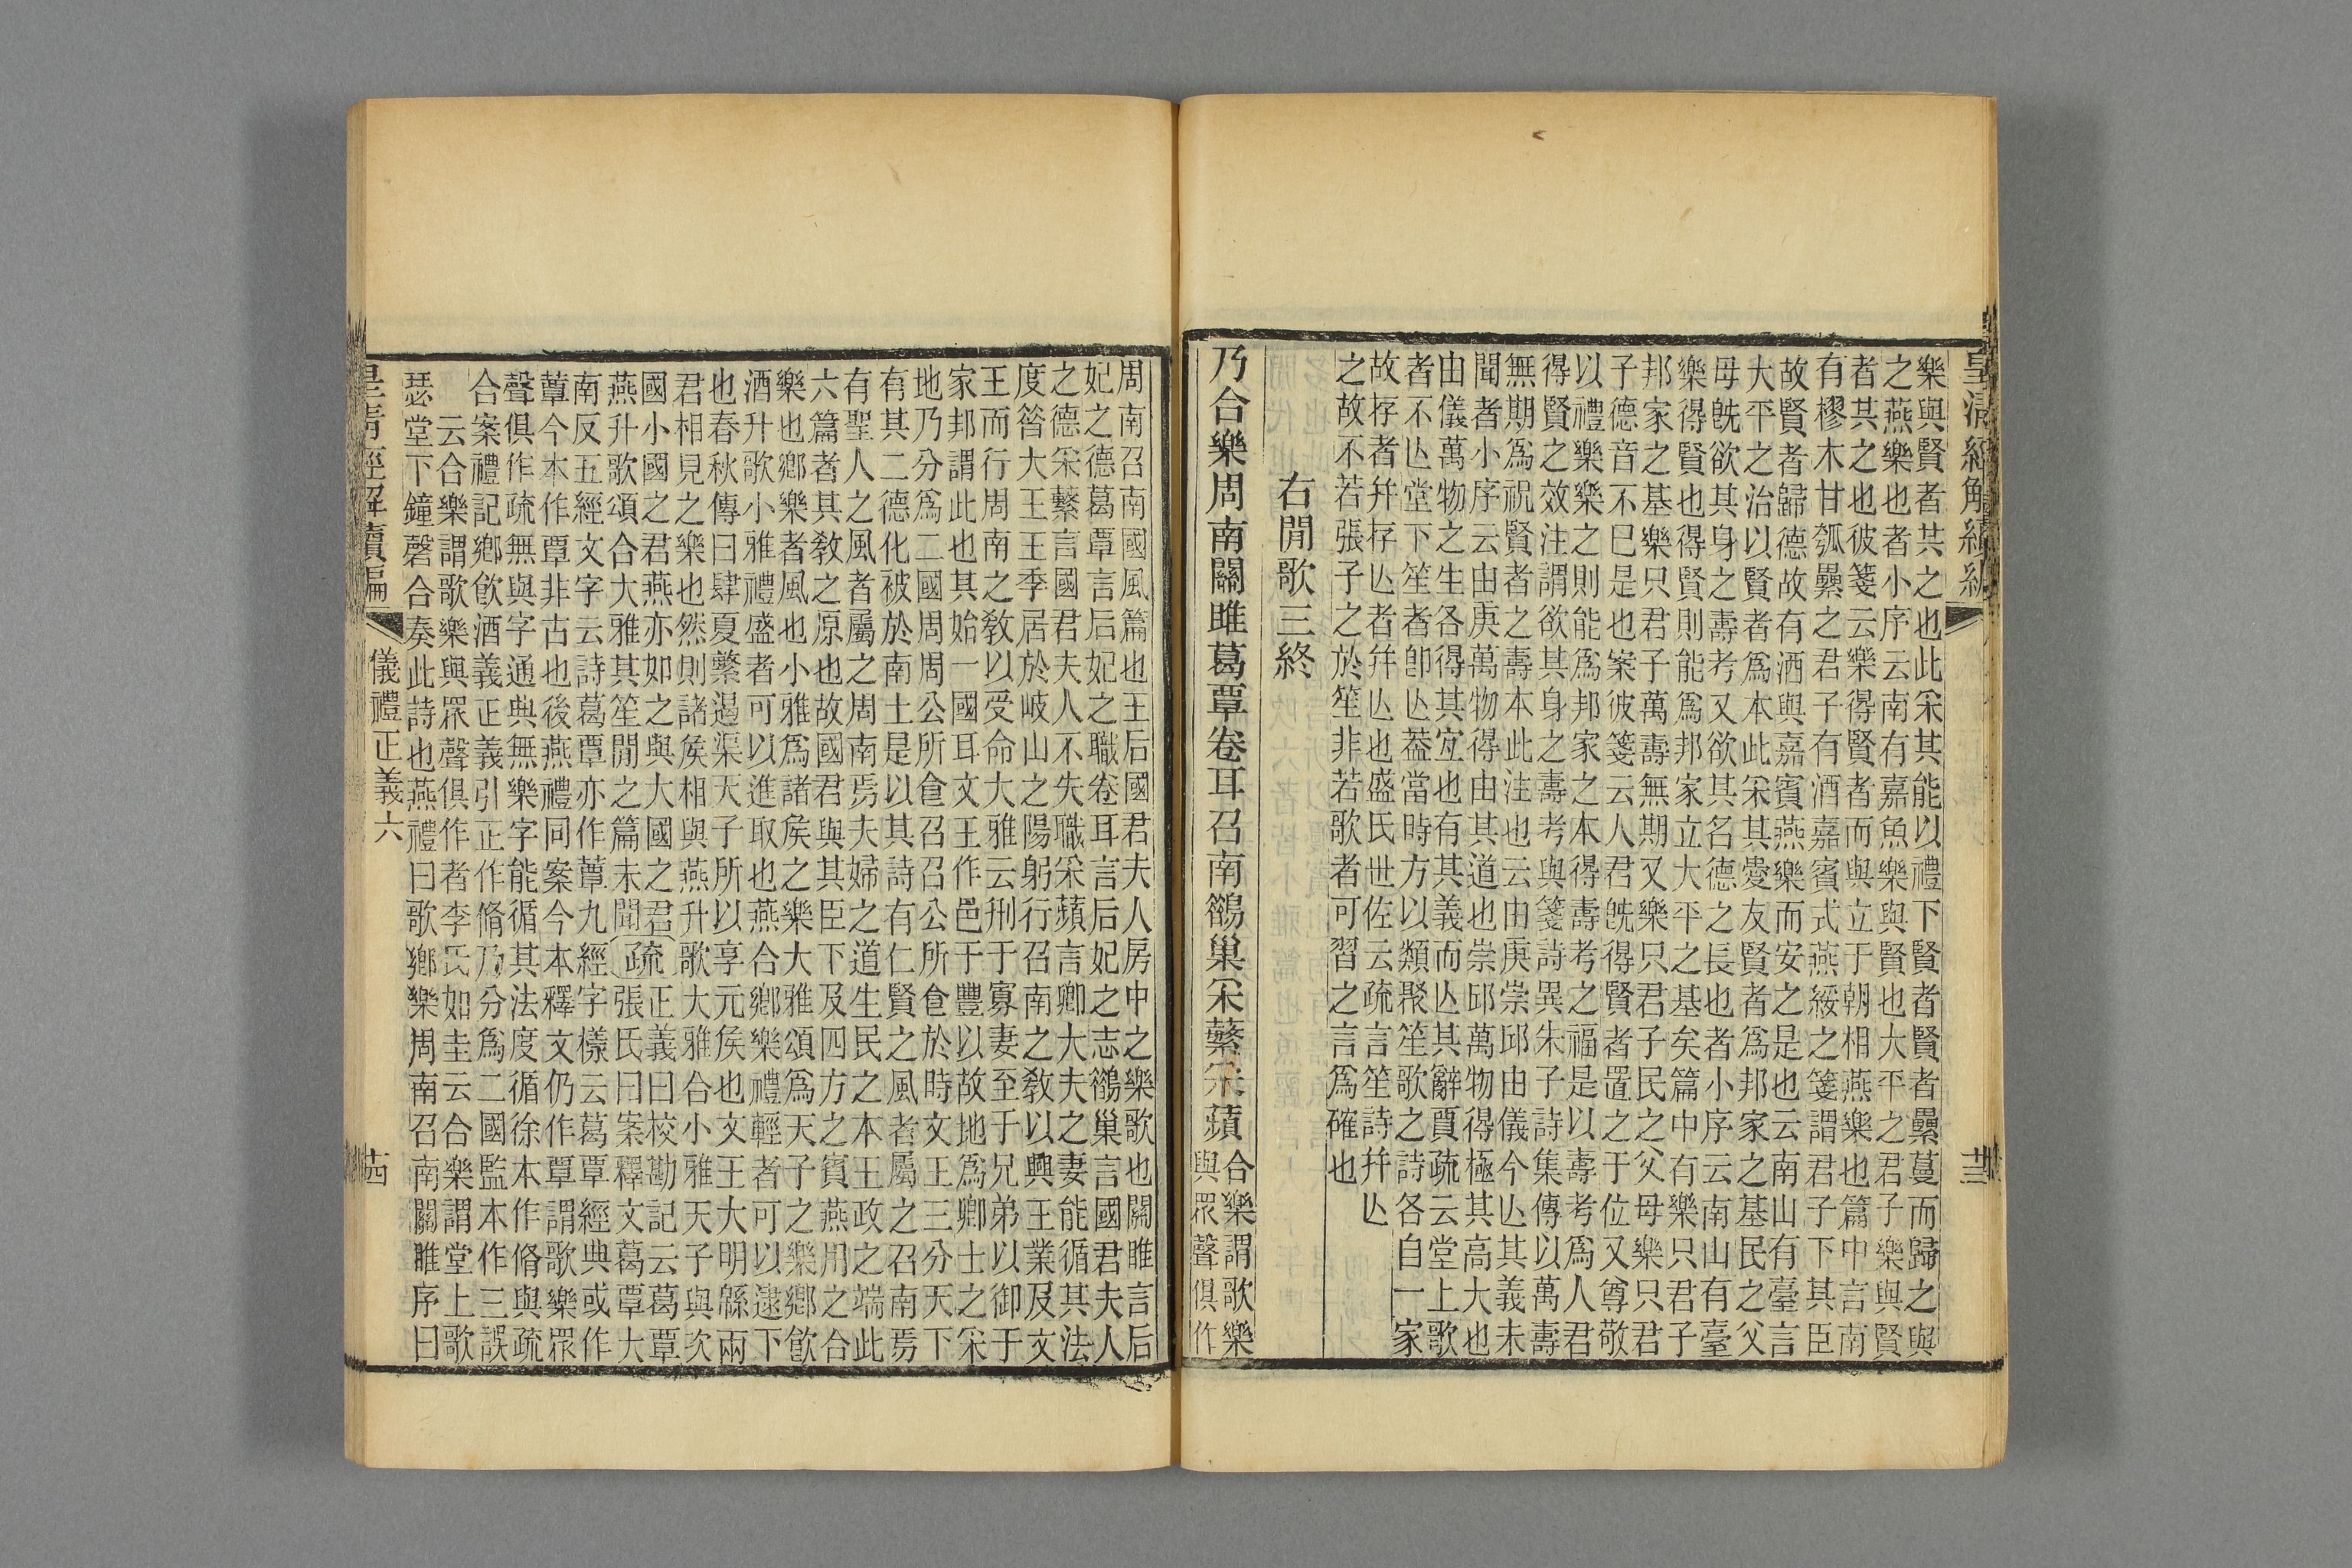 皇清經解續編
樂與賢者其之也此采其能以禮下賢者賢者纍蔓而歸之與
之燕樂也者小序云南有嘉魚樂與賢也大平之君子樂與賢
者其之也彼箋云樂得賢者而與立于朝相燕樂也篇中言南
有樛木甘瓠纍之君子有酒嘉賓式燕綏之箋謂君子下其臣
故賢者歸德故有酒與嘉賓燕樂而安之是也云南山有臺言
大平之治以賢者爲本此采其愛友賢者爲邦家之基民之父
母旣欲其身之壽考又欲其名德之長也者小序云南山有臺
樂得賢也得賢則能爲邦家立大平之基矣篇中有樂只君子
邦家之基樂只君子萬壽無期又樂只君子民之父母樂只君
子德音不巳是也案彼箋云人君旣得賢者置之于位又尊敬
以禮樂樂之則能爲邦家之本得壽考之福是以壽考爲人君
得賢之效注謂欲其身之壽考與箋詩異朱子詩集傳以萬壽
無期爲祝賢者之壽本此注也云由庚崇邱由儀今亾其義未
聞者小序云由庚萬物得由其道也崇邱萬物得極其高大也
由儀萬物之生各得其宜也有其義而亾其辭賈疏云堂上歌
者不亾堂下笙者卽亾葢當時方以類聚笙歌之詩各自一家
故存者幷存亾者幷亾也盛氏世佐云疏言笙詩幷亾
之故不若張子之於笙非若歌者可習之言爲確也
右閒歌三終
乃合樂周南關雎葛覃卷耳召南鵲巢采蘩采蘋合樂謂歌樂
與眾聲俱作
周南召南國風篇也王后國君夫人房中之樂歌也關雎言后
妃之德葛覃言后妃之職卷耳言后妃之志鵲巢言國君夫人
之德采蘩言國君夫人不失職采蘋言卿大夫之妻能循其法
度昝大王王季居於岐山之陽躬行召南之敎以興王業及文
王而行周南之敎以受命大雅云刑于寡妻至于兄弟以御于
家邦謂此也其始一國耳文王作邑于豐以故地爲卿士之采
地乃分爲二國周周公所食召召公所食於時文王三分天下
有其二德化被於南土是以其詩有仁賢之風者屬之召南焉
有聖人之風者屬之周南焉夫婦之道生民之本王政之端此
六篇者其敎之原也故國君與其臣下及四方之賓燕用之合
樂也鄕樂者風也小雅爲諸矦之樂大雅頌爲天子之樂鄕飮
酒升歌小雅禮盛者可以進取也燕合鄕樂禮輕者可以逮下
也春秋傳曰肆夏繁遏渠天子所以享元矦也文王大明緜兩
君相見之樂也然則諸矦相與燕升歌大雅合小雅天子與次
國小國之君燕亦如之與大國之君
燕升歌頌合大雅其笙閒之篇未聞
疏正義曰校勘記云葛覃
張氏曰案釋文葛覃大
南反五經文字云詩葛覃亦作蕈九經字樣云葛覃經典或作
蕈今本作覃非古也後燕禮同案今本釋文仍作覃謂歌樂眾
聲俱作疏無與字通典無樂字能循其法度循徐本作脩與疏
合案禮記鄕飮酒義正義引正作脩乃分爲二國監本作三誤
云合樂謂歌樂與眾聲俱作者李氏如圭云合樂謂堂上歌
瑟堂下鐘磬合奏此詩也燕禮曰歌鄕樂周南召南關雎序曰
皇清經解續編 儀禮正義六